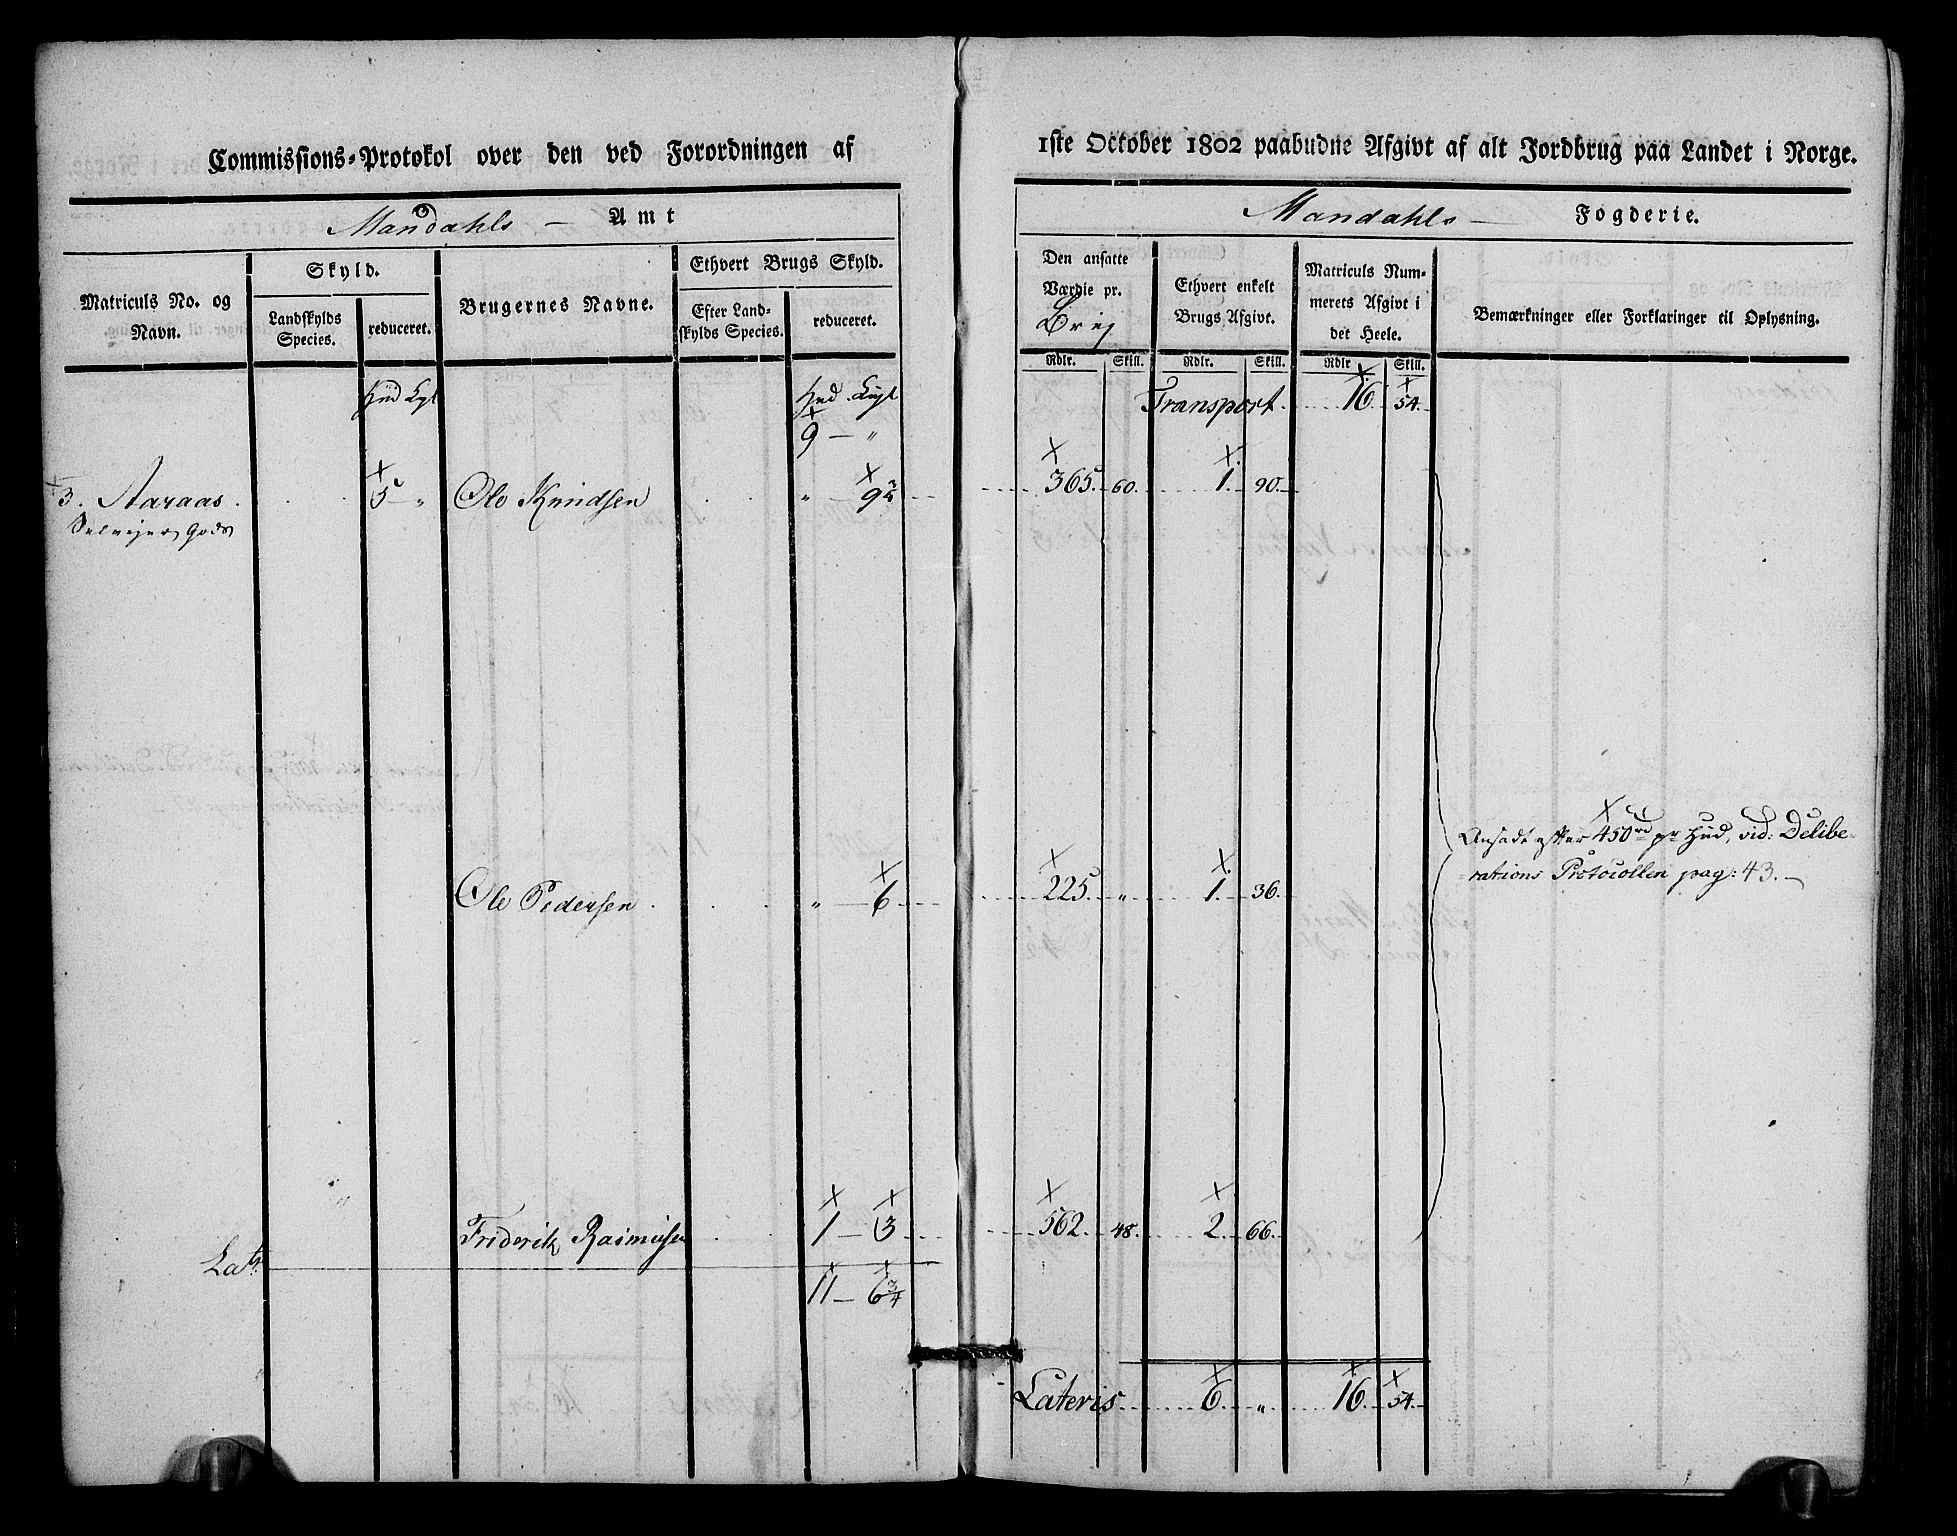 Commissions-Protokol over den ved Forordningen af
Mandahls — Amt
Matriculs No. og Navn.
Skyld.
Landskylds Species.
reduceret.
Brugernes Navne.
Ethvert Brugs Skyld.
Efter Landskylds Species.
reduceret.
Hud Kgl
Hud. Kugl
9 — "
3. Aaraas. 5 — " Ole Knudsen " — 9 3/4
Selvejer Gods
Ole Pedersen " — 6
Friderik Rasmusen 1 — 3
Lats
11 — 6 3/4
1ste October 1802 paabudne Afgivt af alt Jordbrug paa Landet i Norge.
Mandahls — Fogderie.
Den ansatte Værdie pr.
Brug
Ethvert enkelt Brugs Afgivt.
Matriculs Nummerets Afgivt i det Heele.
Bemærkninger eller Forklaringer til Oplysning.
Rdlr. Skill. Rdlr. Skill. Rdlr Skill.
Transport. 16. 54.
365. 60. 1. 90.
Ansadt efter 450 rd pr Hud, vid: Delibe-
-rations Protocollen pag: 43. —
225. " 1. 36.
562. 48. 2. 66.
Lateris. 6. " 16. 54.